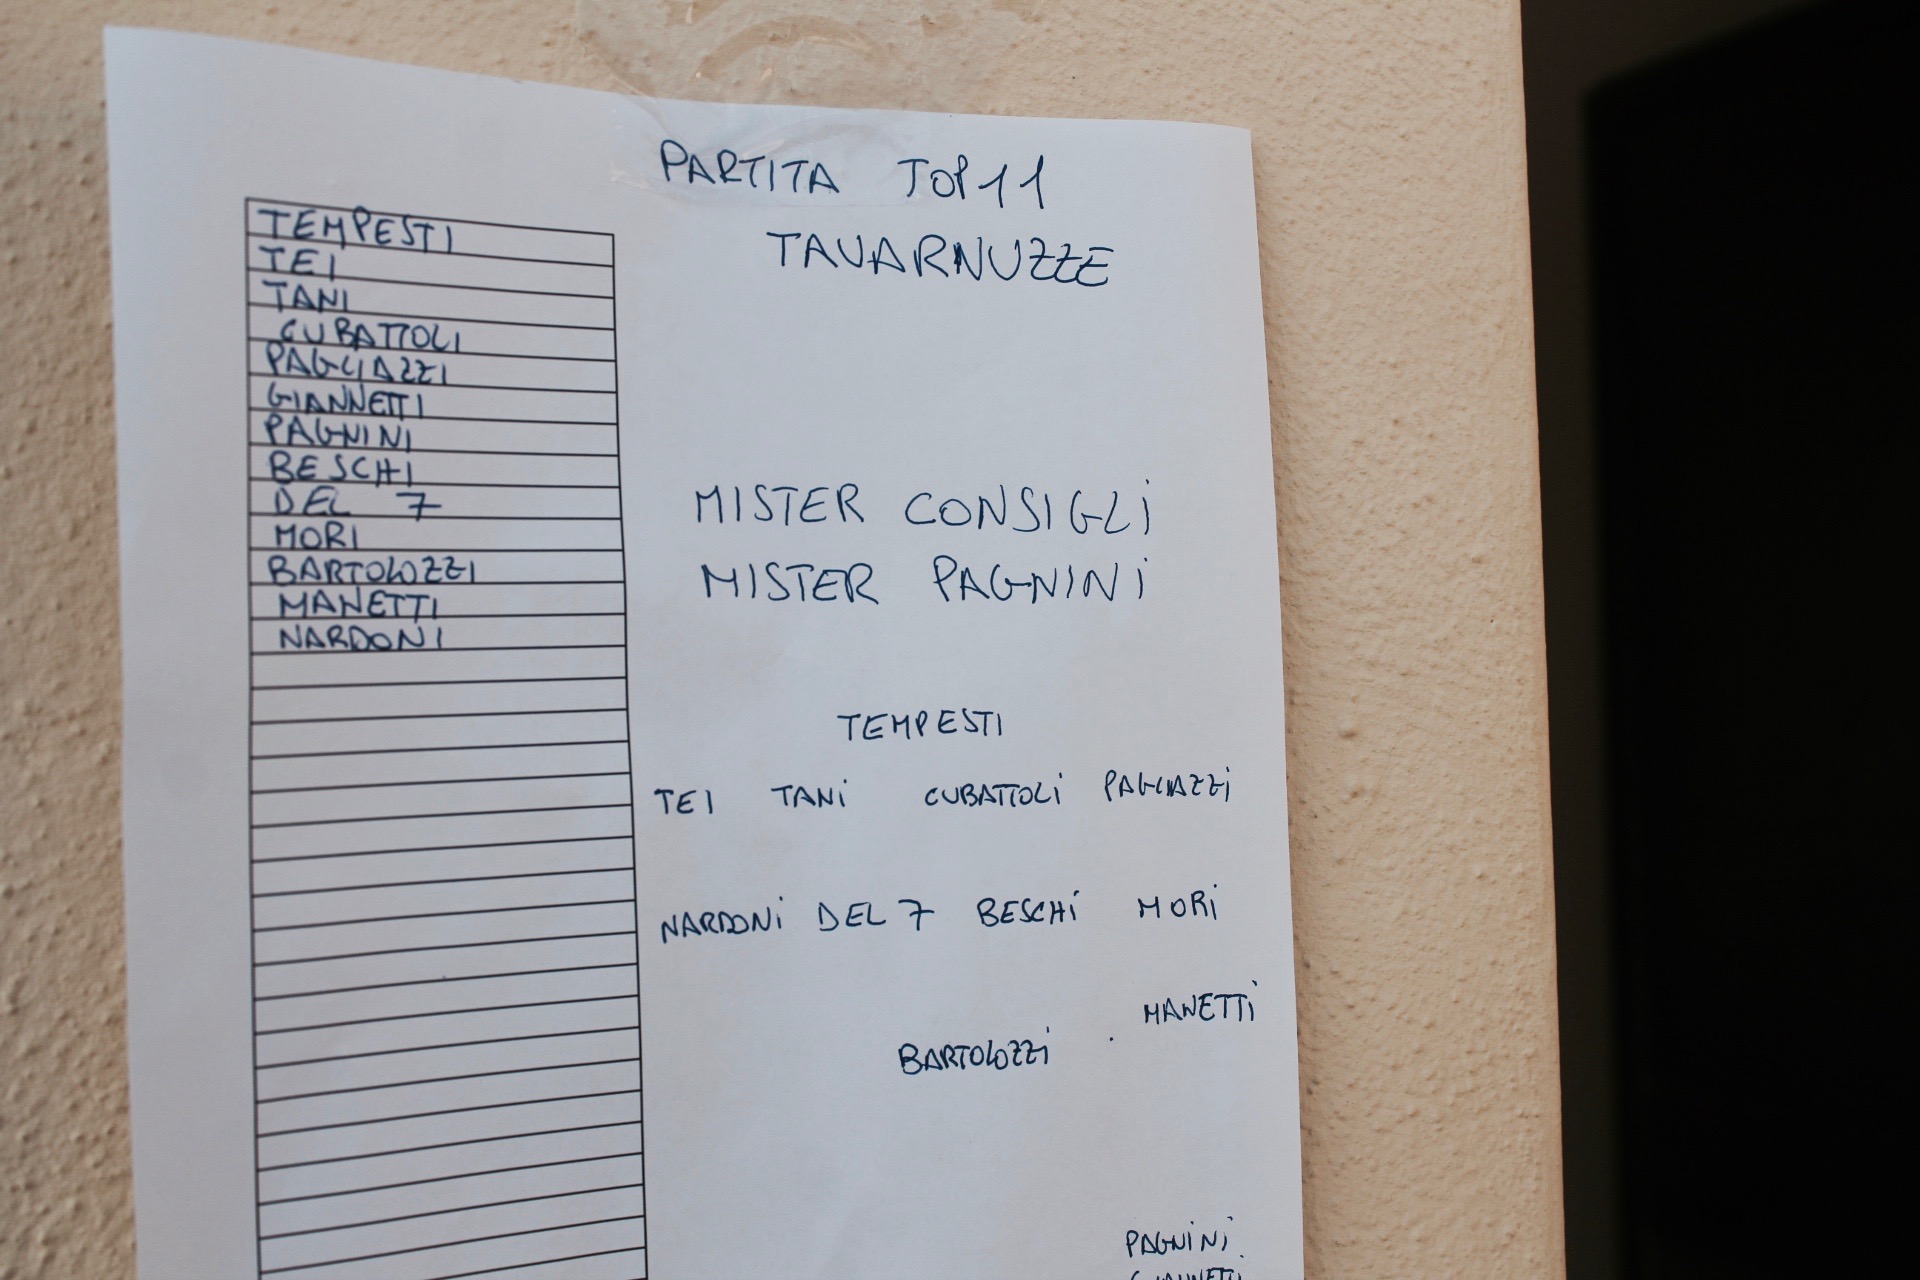 PARTITA TOP 11
TAVARNUZZE
TEMPESTI
TEI
TANI
CUBATTOLI
PAGLIAZZI
GIANNETTI
PAGNINI
BESCHI
DEL 7
MORI
BARTOLOZZI
MANETTI
NARDONI
MISTER CONSIGLI
MISTER PAGNINI
TEMPESTI
TEI TANI CUBATTOLI PAGLIAZZI
NARDONI DEL 7 BESCHI MORI
MANETTI
BARTOLOZZI
PAGNINI
GIANNETTI